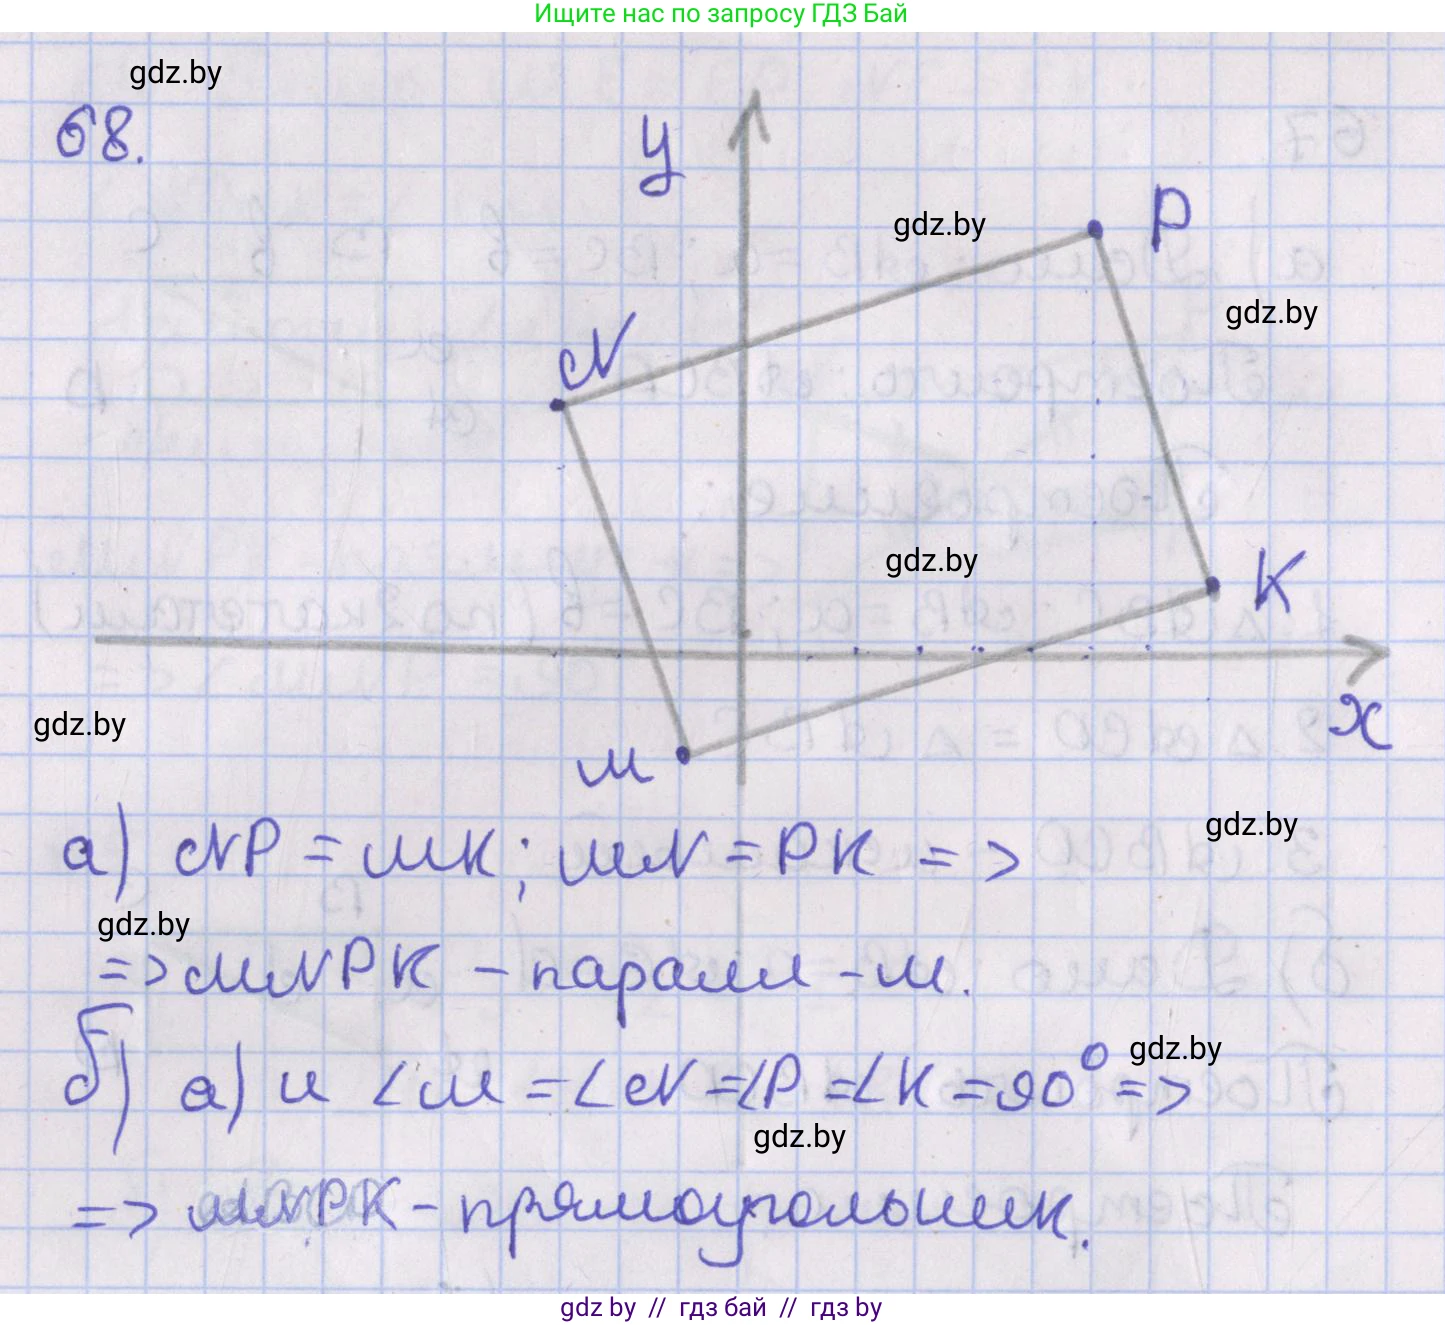 Ищите нас по запросу ГДЗ Бай
gdz.by
68.
y
P
gdz.by
gdz.by
N
gdz.by
K
x
gdz.by
M
gdz.by
а) NP = MK; MN = PK =>
gdz.by
=> MNPK - паралл-м.
gdz.by
б) а) и ∠M = ∠N = ∠P = ∠K = 90° =>
gdz.by
=> MNPK - прямоугольник.
gdz by // гдз бай // гдз by